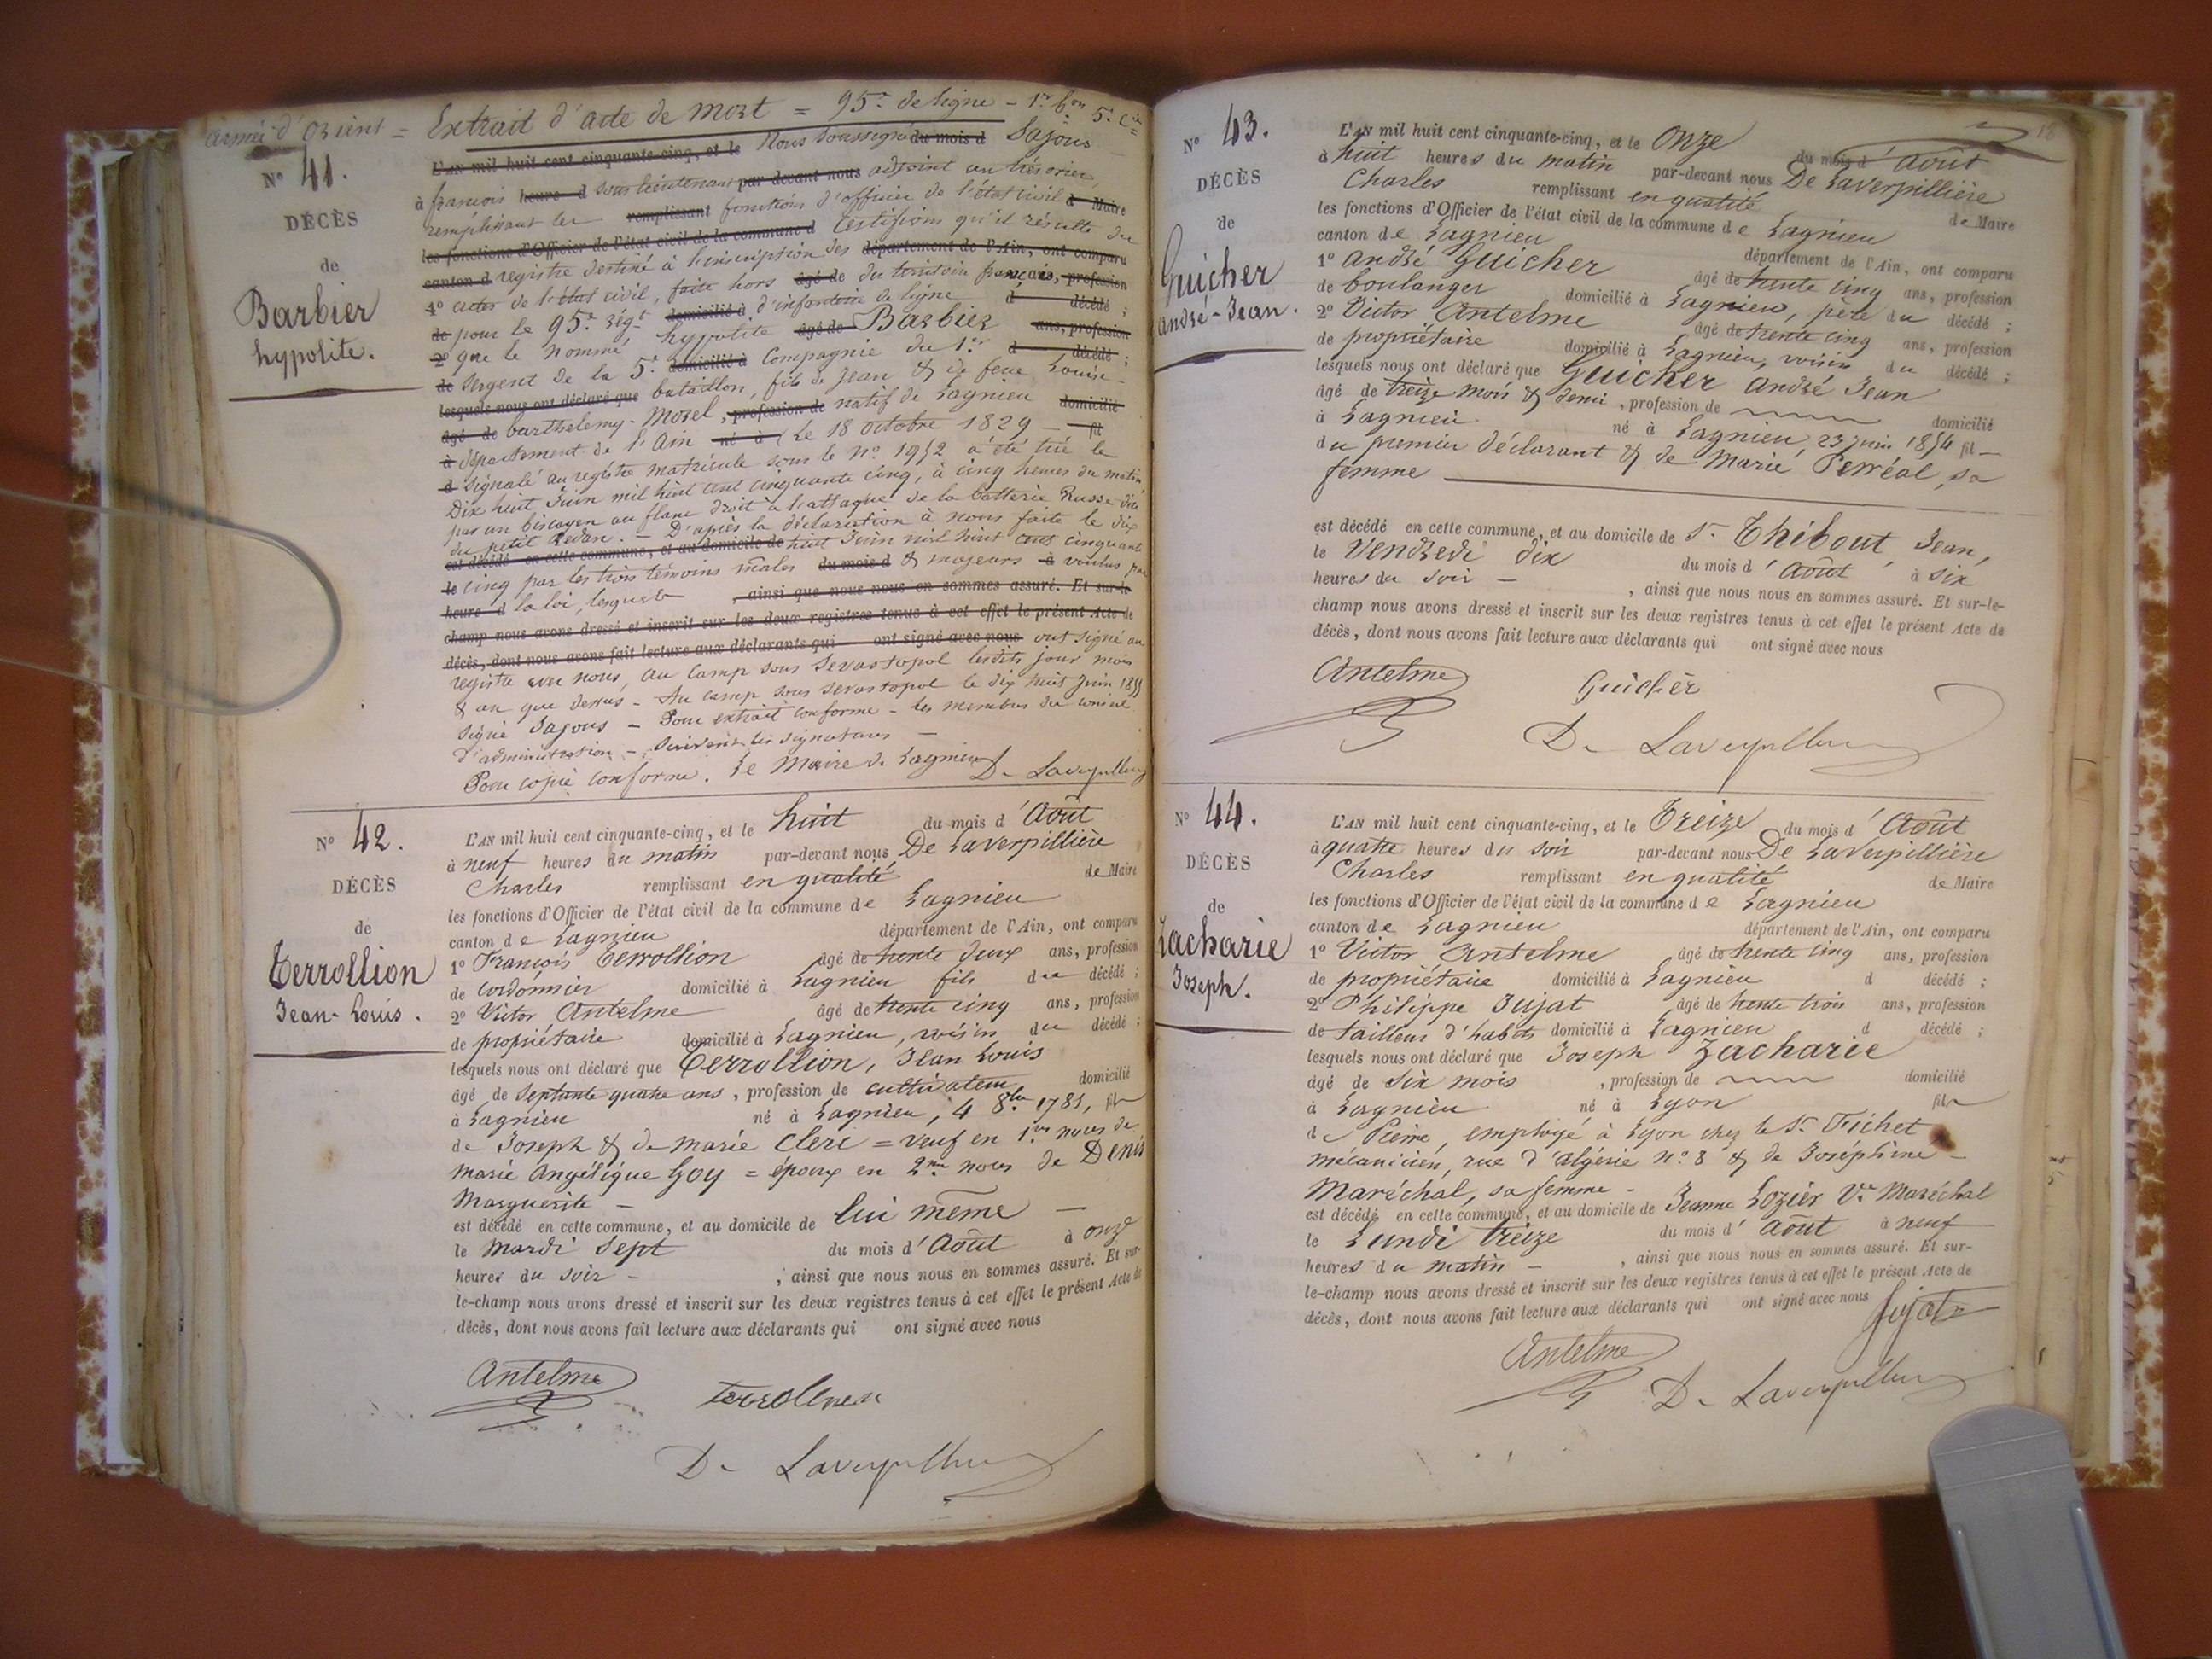 Armée d'Orient = Extrait d'acte de mort = 95e de ligne - 1er bon 5e Cie
N° 41.
DÉCÈS
de
Barbier
hypolite.
L'AN mil huit cent cinquante-cinq, et le Nous soussigné du mois d Sajous
à françois heure d sous lieutenant par-devant nous adjoint au trésorier,
remplissant les remplissant fonctions d'officier de l'état civil d Maire
les fonctions d'Officier de l'état civil de la commune d Certifions qu'il résulte du
canton d registre destiné à l'inscription des département de l'Ain, ont comparu
1° actes de l'état civil, faite hors âgé de du territoire français, profession
de pour le 95e Rigt domicilié à d'infanterie de ligne d décédé ;
2° que le nommé hypolite âgé de Barbier ans, profession
de sergent de la 5e domicilié à Compagnie du 1er d décédé ;
lesquels nous ont déclaré que bataillon, fils de Jean & de feue Louise
âgé de barthelemy-Morel, profession de natif de Lagnieu domicilié
à département de l'Ain né à (le 18 octobre 1829 - fil
d signalé au registre matricule sous le N° 1952 a été tué le
Dix huit Juin mil huit cent cinquante cinq, à cinq heures du matin
par un biscayen au flanc droit à l'attaque de la batterie Russe dite
du petit Redan. - D'après la déclaration à nous faite le dix
est décédé en cette commune, et au domicile de huit Juin mil huit cent cinquante
le cinq par les trois témoins mâles du mois d & majeurs à voulus par
heure d la loi, lesquels , ainsi que nous nous en sommes assuré. Et sur-le
champ nous avons dressé et inscrit sur les deux registres tenus à cet effet le présent Acte de
décès, dont nous avons fait lecture aux déclarants qui ont signé avec nous ont signé au
registre avec nous, au camp sous Sevastopol lesdits jour mois
& an que dessus - Au camp sous Sevastopol le dix huit Juin 1855
signé Sajous - Pour extrait conforme - les membres du conseil
d'administration - suivent les signatures -
Pour copie conforme. Le Maire de Lagnieu De Laverpillière
N° 42.
DÉCÈS
de
Terrollion
Jean-Louis.
L'AN mil huit cent cinquante-cinq, et le huit du mois d'Août
à neuf heures du matin par-devant nous De Laverpillière
Charles remplissant en qualité de Maire
les fonctions d'Officier de l'état civil de la commune de Lagnieu
canton de Lagnieu département de l'Ain, ont comparu
1° François Terrollion âgé de trente deux ans, profession
de cordonnier domicilié à Lagnieu fils du décédé ;
2° Victor Antelme âgé de trente cinq ans, profession
de propriétaire domicilié à Lagnieu, voisin du décédé ;
lesquels nous ont déclaré que Terrollion, Jean Louis
âgé de septante quatre ans, profession de cultivateur domicilié
à Lagnieu né à Lagnieu, 4 8bre 1781, fils
de Joseph & de marie Clerc = veuf en 1res noces de
Marie Angélique Goy = époux en 2mes noces de Denis
Marguerite -
est décédé en cette commune, et au domicile de lui même -
le mardi sept du mois d'Août à onze
heures du soir - , ainsi que nous nous en sommes assuré. Et sur-
le-champ nous avons dressé et inscrit sur les deux registres tenus à cet effet le présent Acte de
décès, dont nous avons fait lecture aux déclarants qui ont signé avec nous
Antelme
terrollion
De Laverpillière
N° 43.
DÉCÈS
de
Guicher
André-Jean.
L'AN mil huit cent cinquante-cinq, et le Onze du mois d'Août
à huit heures du matin par-devant nous De Laverpillière
Charles remplissant en qualité de Maire
les fonctions d'Officier de l'état civil de la commune de Lagnieu
canton de Lagnieu département de l'Ain, ont comparu
1° André Guicher âgé de trente cinq ans, profession
de boulanger domicilié à Lagnieu, père du décédé ;
2° Victor Antelme âgé de trente cinq ans, profession
de propriétaire domicilié à Lagnieu, voisin du décédé ;
lesquels nous ont déclaré que Guicher André Jean
âgé de treize mois & demi, profession de domicilié
à Lagnieu né à Lagnieu 23 juin 1854 fil -
du premier déclarant & de Marie Perréal, sa
femme
est décédé en cette commune, et au domicile de Sr Thibout Jean,
le Vendredi dix du mois d'Août à six
heures du soir - , ainsi que nous nous en sommes assuré. Et sur-le-
champ nous avons dressé et inscrit sur les deux registres tenus à cet effet le présent Acte de
décès, dont nous avons fait lecture aux déclarants qui ont signé avec nous
Antelme
Guicher
De Laverpillière
N° 44.
DÉCÈS
de
Zacharie
Joseph.
L'AN mil huit cent cinquante-cinq, et le Treize du mois d'Août
à quatre heures du soir par-devant nous De Laverpillière
Charles remplissant en qualité de Maire
les fonctions d'Officier de l'état civil de la commune de Lagnieu
canton de Lagnieu département de l'Ain, ont comparu
1° Victor Antelme âgé de trente cinq ans, profession
de propriétaire domicilié à Lagnieu d décédé ;
2° Philippe Jujat âgé de trente trois ans, profession
de tailleur d'habits domicilié à Lagnieu d décédé ;
lesquels nous ont déclaré que Joseph Zacharie
âgé de six mois , profession de domicilié
à Lagnieu né à Lyon fils
de Pierre, employé à Lyon chez le Sr Fichet
mécanicien, rue d'algérie N° 8 & de Joséphine -
Maréchal, sa femme -
est décédé en cette commune, et au domicile de Jeanne Lozier Ve Maréchal
le Lundi treize du mois d'Août à neuf
heures du matin - , ainsi que nous nous en sommes assuré. Et sur-
le-champ nous avons dressé et inscrit sur les deux registres tenus à cet effet le présent Acte de
décès, dont nous avons fait lecture aux déclarants qui ont signé avec nous Jujat
Antelme
De Laverpillière